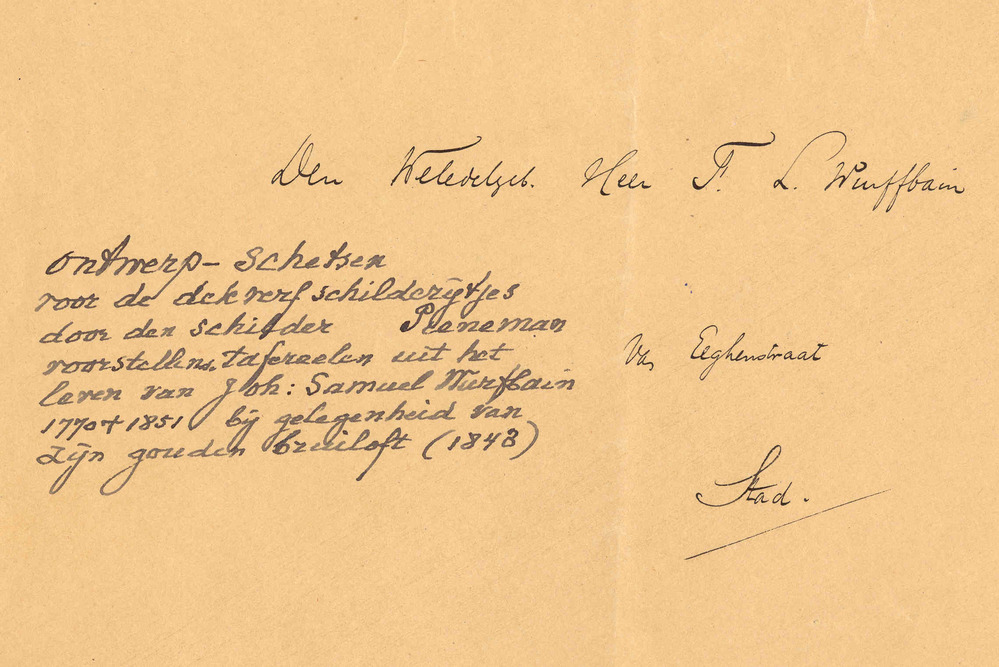 Den Weledelgeb. Heer F. L. Wurffbain
ontwerp-schetsen
voor de dekverf schilderijtjes
door den schilder Pieneman
voorstellend. tafereelen uit het
leven van Joh: Samuel Wurfbain
1770 + 1851 bij gelegenheid van
zijn gouden bruiloft (1843)
Van Eeghenstraat
Stad.